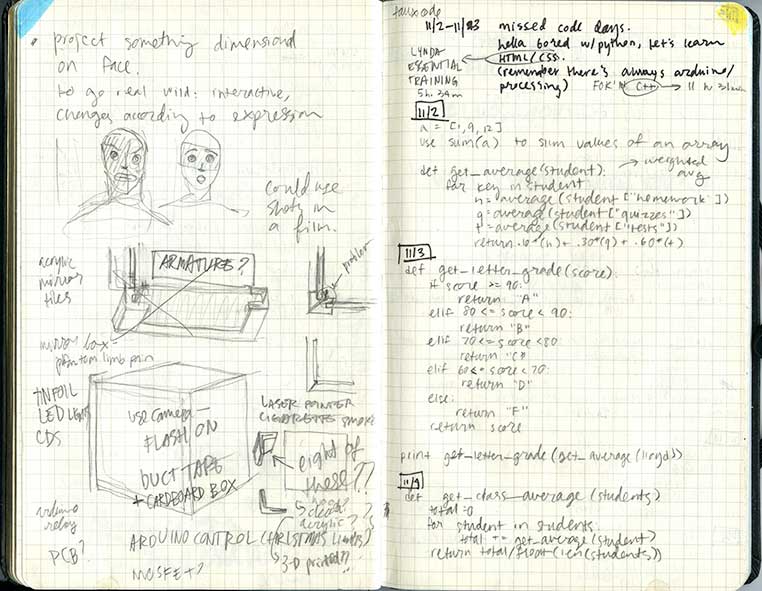 • project something dimensional
on face.
to go real wild: interactive,
changes according to expression
could use
shots in
a film.
acrylic
mirror
tiles
ARMATURE?
problem
mirror box =
phantom limb pain
TINFOIL
LED lights
CDS
use camera —
FLASH ON
DUCT TAPE
+ CARDBOARD BOX
LASER POINTER
CIGARETTE SMOKE
eight of
these??
5
clear
acrylic?
3-D printed??
arduino
relay
PCB?
ARDUINO CONTROL (CHRISTMAS lights)
MOSFET?
faux code
11/2–11/23 missed code days.
hella bored w/python, let's learn
HTML/CSS.
(remember there's always arduino/
processing)
LYNDA
ESSENTIAL
TRAINING
5h. 34m
C++ → 11 hr 31min
11/2
a = [1, 9, 12]
use sum(a) to sum values of an array
→ weighted
avg
def get_average(student):
for key in student
h = average(student["homework"])
q = average(student["quizzes"])
t = average(student["tests"])
return .1*(h) + .30*(q) + .60*(t)
11/3
def get_letter_grade(score):
if score >= 90:
return "A"
elif 80 <= score < 90:
return "B"
elif 70 <= score < 80:
return "C"
elif 60 <= score < 70:
return "D"
else:
return "F"
return score
print get_letter_grade(get_average(lloyd))
11/9
def get_class_average (students)
total = 0
for student in students:
total += get_average(student)
return total/float(len(students))